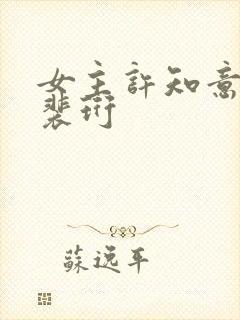 女主許知意
裴珩
蘇逸平